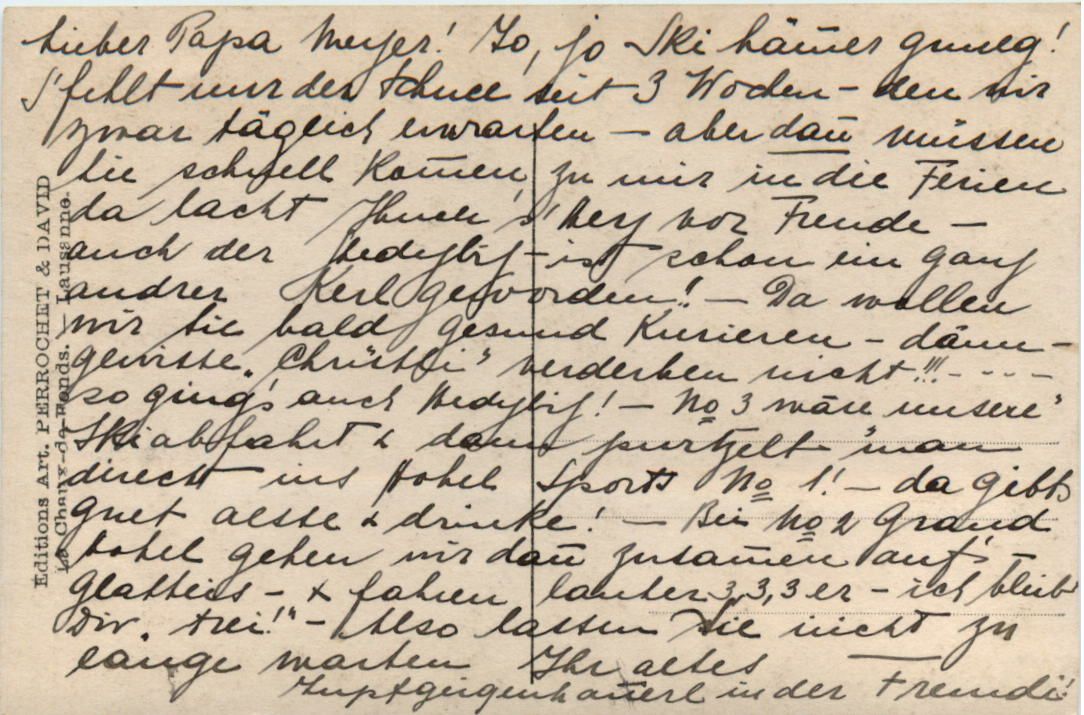 Lieber Papa Meyer! Jo, jo Ski hām̄er gnueg!
S'fehlt nur der Schnee seit 3 Wochen – den wir
zwar täglich erwarten – aber dan̄ müssen
Sie schnell kom̄en, zu mir in die Ferien
da lacht Ihnen s'Herz vor Freude –
auch der – ist schon ein ganz
andrer Kerl geworden! – Da wollen
wir Sie bald gesund kurieren – dänn –
gewisse „Chrüttli" verderben nicht!!! - - - -
so ging's auch ! – No 3 wäre unsere
Skiabfahrt & dann purtzelt man
direckt ins Hotel Sports No 1! – da gibts
guet z'esse & drinke! – Bei No 2 Grand
Hotel gehen wir dan̄ zusam̄en auf's
Glatteis – & fahren lauter 3,3,3 er – ich bleib
Dir „trei!" – Also lassen Sie nicht zu
lange warten Ihr altes
in der Fremdi!
Editions Art. PERROCHET & DAVID
La Chaux-de-Fonds. — Lausanne.